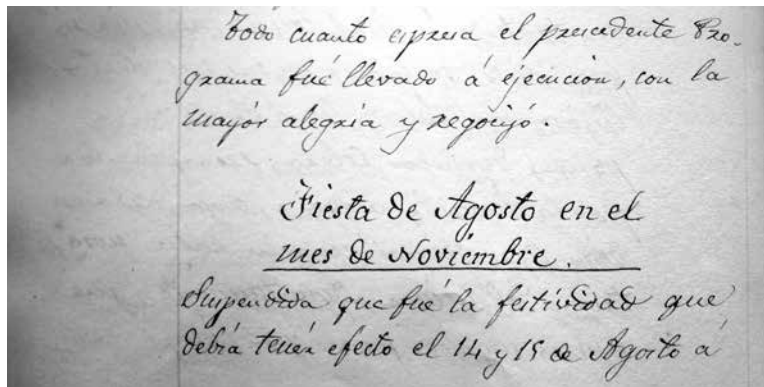 Todo cuanto expresa el precedente Pro-
grama fué llevado á ejecucion, con la
mayór alegria y regocijó.
Fiesta de Agosto en el
mes de Noviembre.
Suspendida que fué la festividad que
debia tenér efecto el 14 y 15 de Agosto á